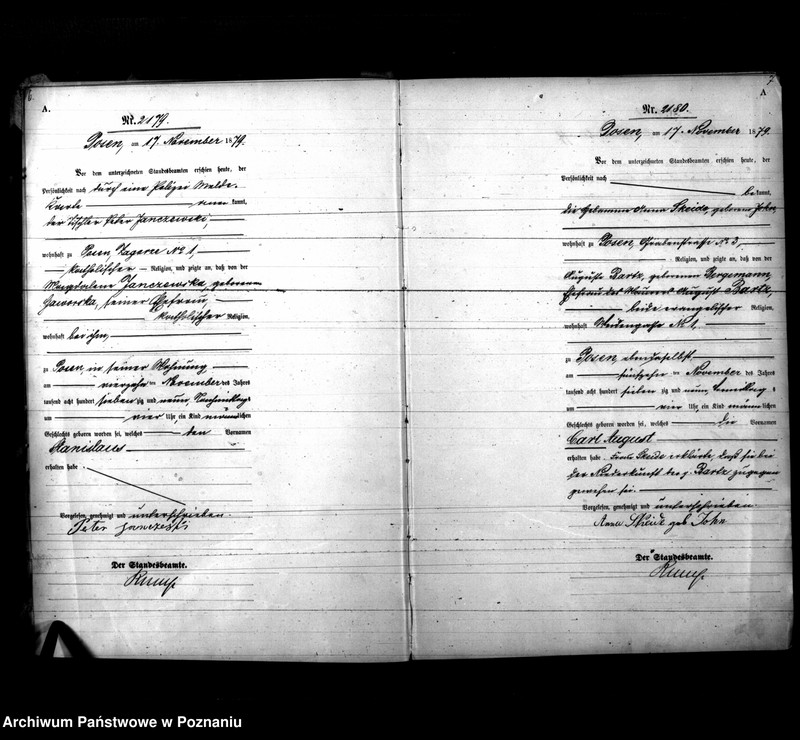 6.
A.
Nr. 2179.
Posen, am 17. November 1879.
Vor dem unterzeichneten Standesbeamten erschien heute, der
Persönlichkeit nach durch eine Polizei Melde-
kannt,
der Tischler Peter Janczewski,
wohnhaft zu Posen, Zagorze No 1,
katholischer Religion, und zeigte an, daß von der
Magdalena Janczewska, geborenen
Jaworska, seiner Ehefrau,
katholischer Religion
wohnhaft bei ihm,
zu Posen in seiner Wohnung
am vierzehn ten November des Jahres
tausend acht hundert sieben zig und neun, Nachmittags
um vier Uhr, ein Kind männlichen
Geschlechts geboren worden sei, welches den Vornamen
Stanislaus
erhalten habe.
Vorgelesen, genehmigt und unterschrieben.
Peter
Der Standesbeamte.
7
A
Nr. 2180.
Posen, am 17. November 1879.
Vor dem unterzeichneten Standesbeamten erschien heute, der
Persönlichkeit nach
bekannt,
die Hebamme Anna Skeide, geborene John,
wohnhaft zu Posen, Grabenstraße No 3,
Religion, und zeigte an, daß von der
Auguste Bartz, geborenen Bergemann,
Ehefrau des Maurers August Bartz,
beide evangelischer Religion,
wohnhaft Weidengasse No 1,
zu Posen, ebendaselbst
am fünfzehn ten November des Jahres
tausend acht hundert sieben zig und neun, Vormittags
um vier Uhr ein Kind männlichen
Geschlechts geboren worden sei, welches die Vornamen
Carl August
erhalten habe. Frau Skeide erklärte, daß sie bei
der Niederkunft der p. Bartz zugegen
gewesen sei.
Vorgelesen, genehmigt und unterschrieben.
Anna Skeide geb John
Der Standesbeamte.
Archiwum Państwowe w Poznaniu